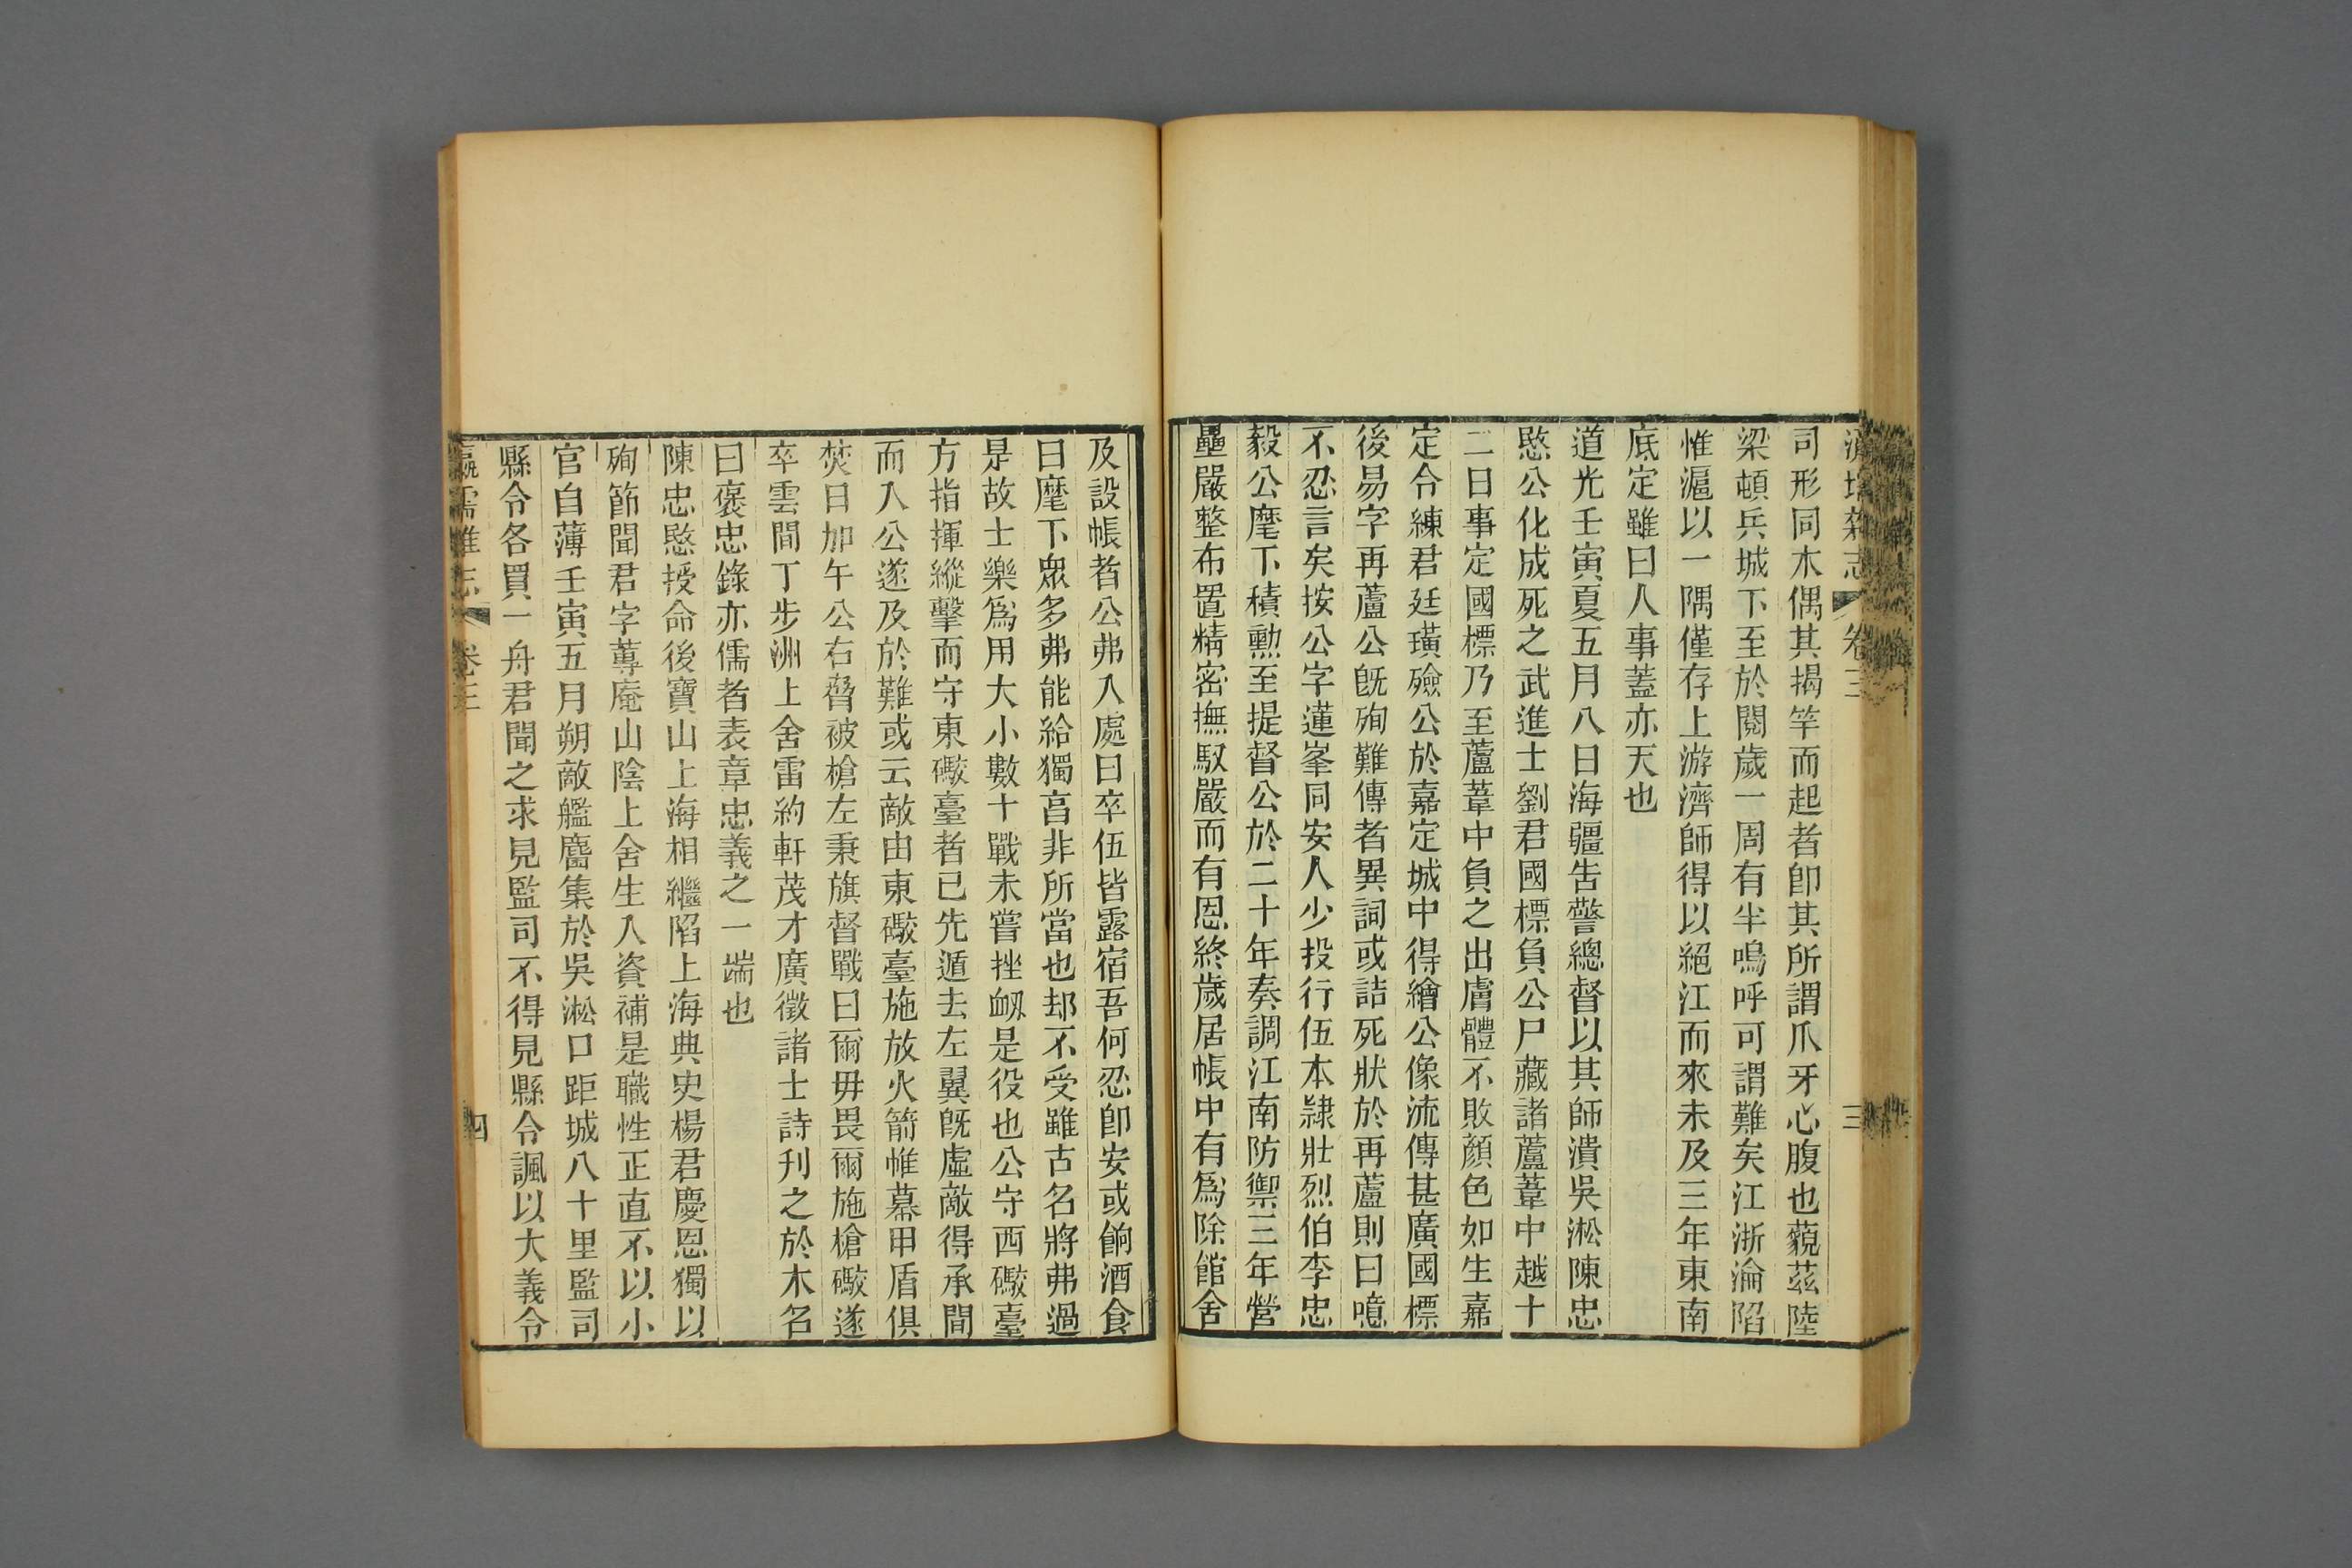 瀛壖雜志 卷三 三
司形同木偶其揭竿而起者卽其所謂爪牙心腹也藐茲陸
梁頓兵城下至於閱歲一周有半嗚呼可謂難矣江浙淪陷
惟滬以一隅僅存上游濟師得以絕江而來未及三年東南
底定雖曰人事蓋亦天也
道光壬寅夏五月八日海疆告警總督以其師潰吳淞陳忠
愍公化成死之武進士劉君國標負公尸藏諸蘆葦中越十
二日事定國標乃至蘆葦中負之出膚體不敗顏色如生嘉
定令練君廷璜殮公於嘉定城中得繪公像流傳甚廣國標
後易字再蘆公旣殉難傳者異詞或詰死狀於再蘆則曰噫
不忍言矣按公字蓮峯同安人少投行伍本隷壯烈伯李忠
毅公麾下積勳至提督公於二十年奏調江南防禦三年營
壘嚴整布置精密撫馭嚴而有恩終歲居帳中有爲除館舍
及設帳者公弗入處曰卒伍皆露宿吾何忍卽安或餉酒食
曰麾下眾多弗能給獨亯非所當也却不受雖古名將弗過
是故士樂爲用大小數十戰未嘗挫衂是役也公守西礮臺
方指揮縱擊而守東礮臺者已先遁去左翼旣虛敵得承間
而入公遂及於難或云敵由東礮臺施放火箭帷幕甲盾俱
焚日加午公右脅被槍左秉旗督戰曰爾毋畏爾施槍礮遂
卒雲間丁步洲上舍雷約軒茂才廣徵諸士詩刋之於木名
曰褒忠錄亦儒者表章忠義之一端也
陳忠愍授命後寶山上海相繼陷上海典史楊君慶恩獨以
殉節聞君字蓴庵山陰上舍生入資補是職性正直不以小
官自薄壬寅五月朔敵艦麕集於吳淞口距城八十里監司
縣令各買一舟君聞之求見監司不得見縣令諷以大義令
瀛壖雜志 卷三 四